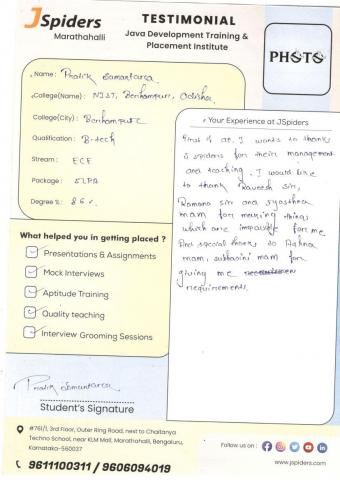 JSpiders
Marathahalli
TESTIMONIAL
Java Development Training &
Placement Institute
PHOTO
Name: Pratik Samantaray
College(Name): NIST, Berhampur, Odisha
College(City): Berhampur
Qualification: B-tech
Stream: ECE
Package: 5LPA
Degree %: 86%
Your Experience at JSpiders
First of all, I wants to thanks
J spiders for their management
and teaching. I would like
to thank Ravneesh sir,
Ramana sir and
mam for making things
which are impossible for me
And special thanks to
mam, subhasini mam for
giving me
requirements.
What helped you in getting placed ?
Presentations & Assignments
Mock Interviews
Aptitude Training
Quality teaching
Interview Grooming Sessions
Pratik Samantaray
Student's Signature
#761/1, 3rd Floor, Outer Ring Road, next to Chaitanya
Techno School, near KLM Mall, Marathahalli, Bengaluru,
Karnataka-560037
9611100311 / 9606094019
Follow us on :
www.jspiders.com